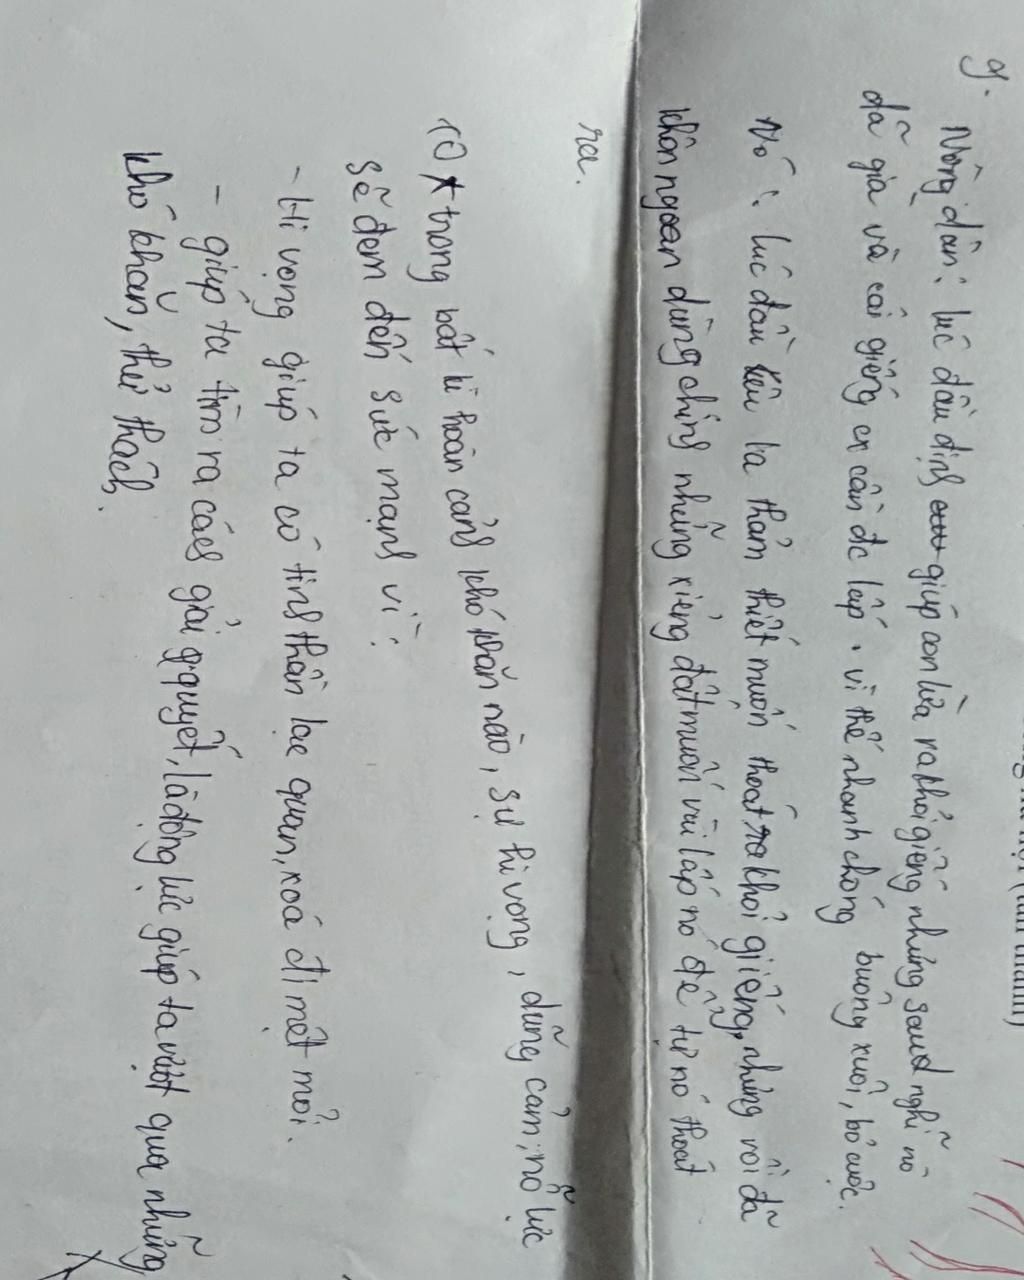 9.
Nông dân: lúc đầu định giúp con lừa ra khỏi giếng nhưng sau nghĩ nó
đã già và cái giếng cx cần đc lấp. vì thế nhanh chóng buông xuôi, bỏ cuộc.
Nó: lúc đầu kêu la thảm thiết muốn thoát ra khỏi giếng, nhưng rồi đã
khôn ngoan dùng chính những xẻng đất muốn vùi lấp nó để tự nó thoát
ra.
10 * trong bất kì hoàn cảnh khó khăn nào, sự hi vọng, dũng cảm, nỗ lực
sẽ đem đến sức mạnh vì:
- Hi vọng giúp ta có tinh thần lạc quan, xoá đi mệt mỏi.
- giúp ta tìm ra cách giải quyết, là động lực giúp ta vượt qua những
khó khăn, thử thách.